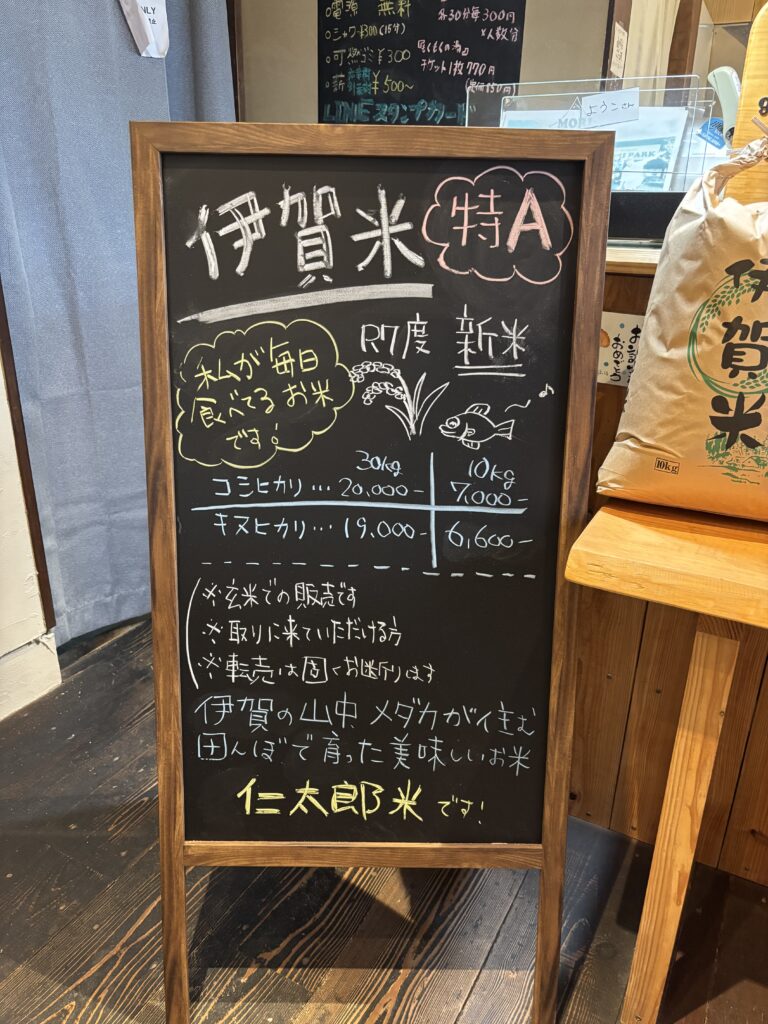 NLY
○電源 無料
○シャワー¥300(15分)
○可燃ゴミ¥300
○薪
¥500〜
LINEスタンプカード
各30分毎300円
×人数分
チケット1枚770円
ようこそ
PARK
伊賀米
特A
R7度 新米
私が毎日
食べてる お米
です!
30kg 10kg
コシヒカリ… 20,000- 7,000-
キヌヒカリ… 19,000- 6,600-
※玄米での販売です
※取りに来ていただける方
※転売は固くお断りします
伊賀の山中 メダカが住む
田んぼで育った美味しいお米
仁太郎米です!
伊賀米
10kg